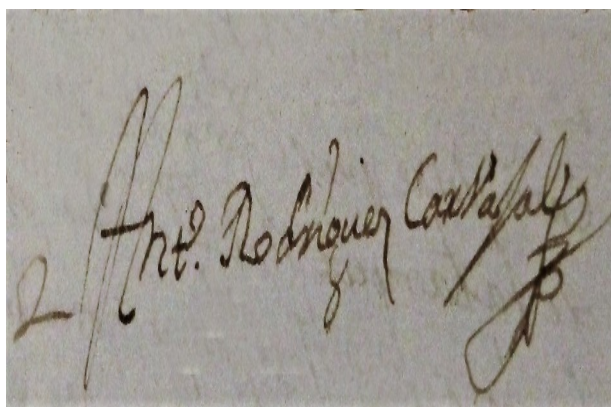 Antº. Rodriguez Carvajal